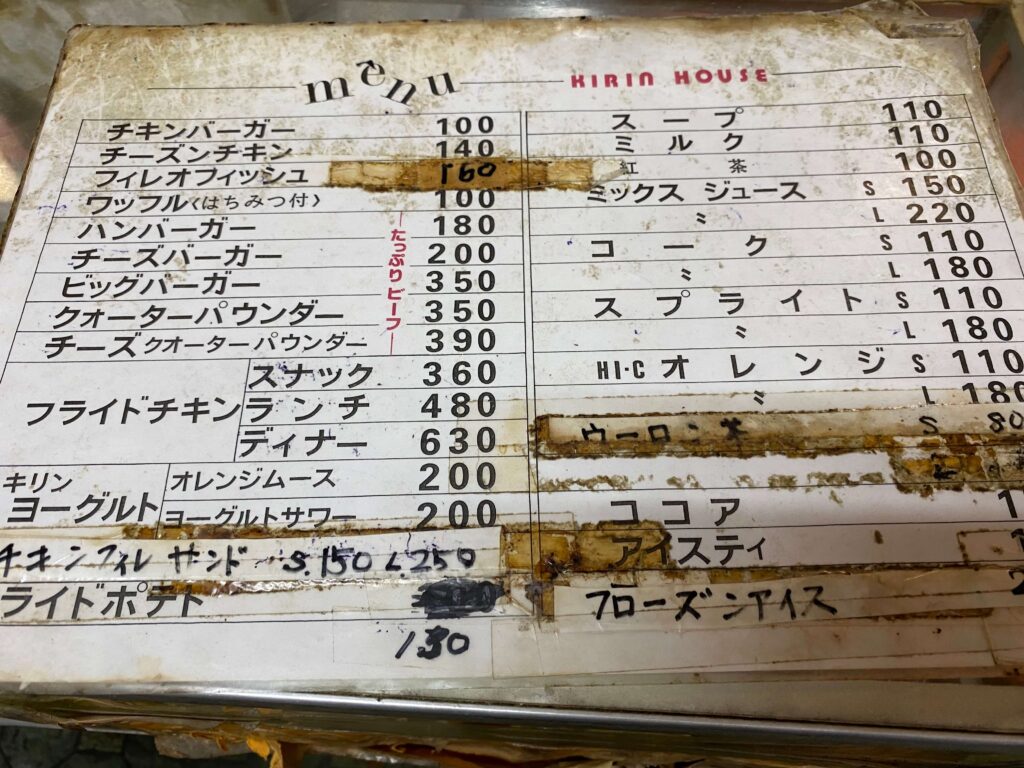 menu KIRIN HOUSE
チキンバーガー 100
チーズンチキン 140
フィレオフィッシュ 160
ワッフル〈はちみつ付〉 100
ハンバーガー 180
チーズバーガー 200
ビッグバーガー 350
クォーターパウンダー 350
チーズクオーターパウンダー 390
たっぷりビーフ
フライドチキン
スナック 360
ランチ 480
ディナー 630
キリン
ヨーグルト
オレンジムース 200
ヨーグルトサワー 200
チキンフィレサンド S.150 L.250
ライドポテト
130
スープ 110
ミルク 110
紅茶 100
ミックス ジュース S 150
〃 L 220
コーク S 110
〃 L 180
スプライト S 110
〃 L 180
HI-C オレンジ S 110
〃 L 180
ウーロン茶 S 80
ココア
アイスティ
フローズンアイス